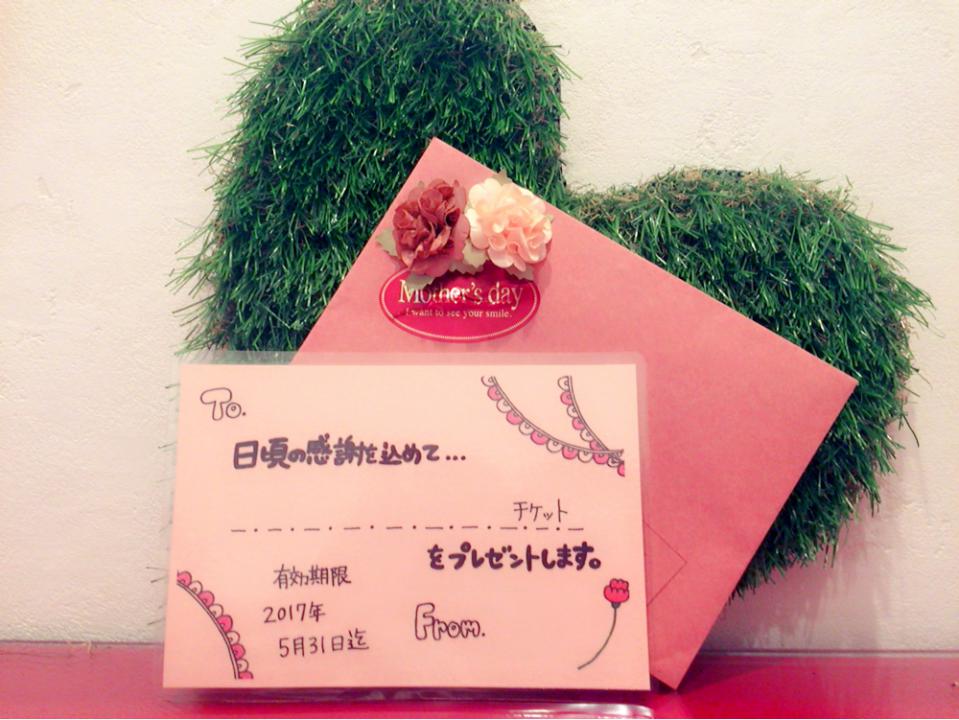 Mother's day
I want to see your smile.
To.
日頃の感謝を込めて...
チケット
をプレゼントします。
有効期限
2017年
5月31日迄
From.